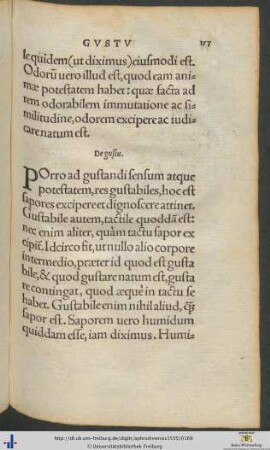 GVSTV 173
le quidem (ut diximus) eiusmodi est.
Odorũ uero illud est, quod eam ani-
mæ potestatem habet: quæ facta ad
rem odorabilem immutatione ac si-
militudine, odorem excipere ac iudi-
care natum est.
De gustu.
POrro ad gustandi sensum atque
potestatem, res gustabiles, hoc est
sapores excipere et dignoscere attinet.
Gustabile autem, tactile quoddã est:
nec enim aliter, quàm tactu sapor ex
cipit̃. Idcirco fit, ut nullo alio corpore
intermedio, præter id quod est gusta
bile, & quod gustare natum est, gusta
re contingat, quod æquè in tactu se
habet. Gustabile enim nihil aliud, q̃
sapor est. Saporem uero humidum
quiddam esse, iam diximus. Humi-
http://dl.ub.uni-freiburg.de/diglit/aphrodisiensis1535/0169
© Universitätsbibliothek Freiburg